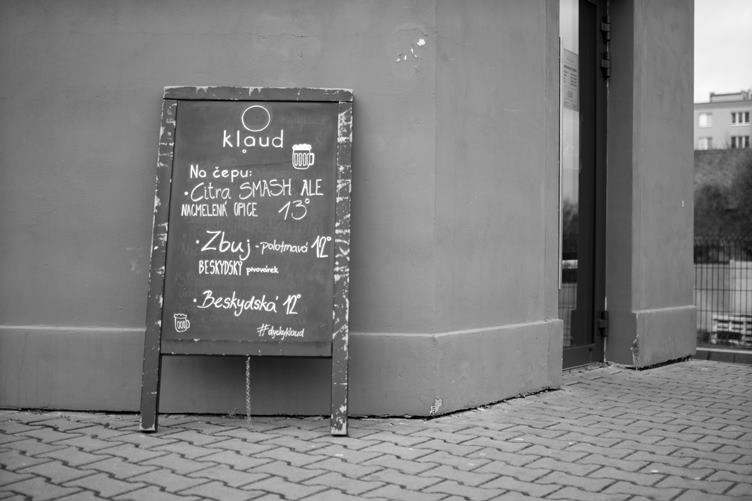 klaud
Na čepu:
• Citra SMASH ALE
NACHMELENÁ OPICE 13°
• Zbuj - polotmavá 12°
BESKYDSKÝ pivovárek
• Beskydská 12°
#dyckyklaud